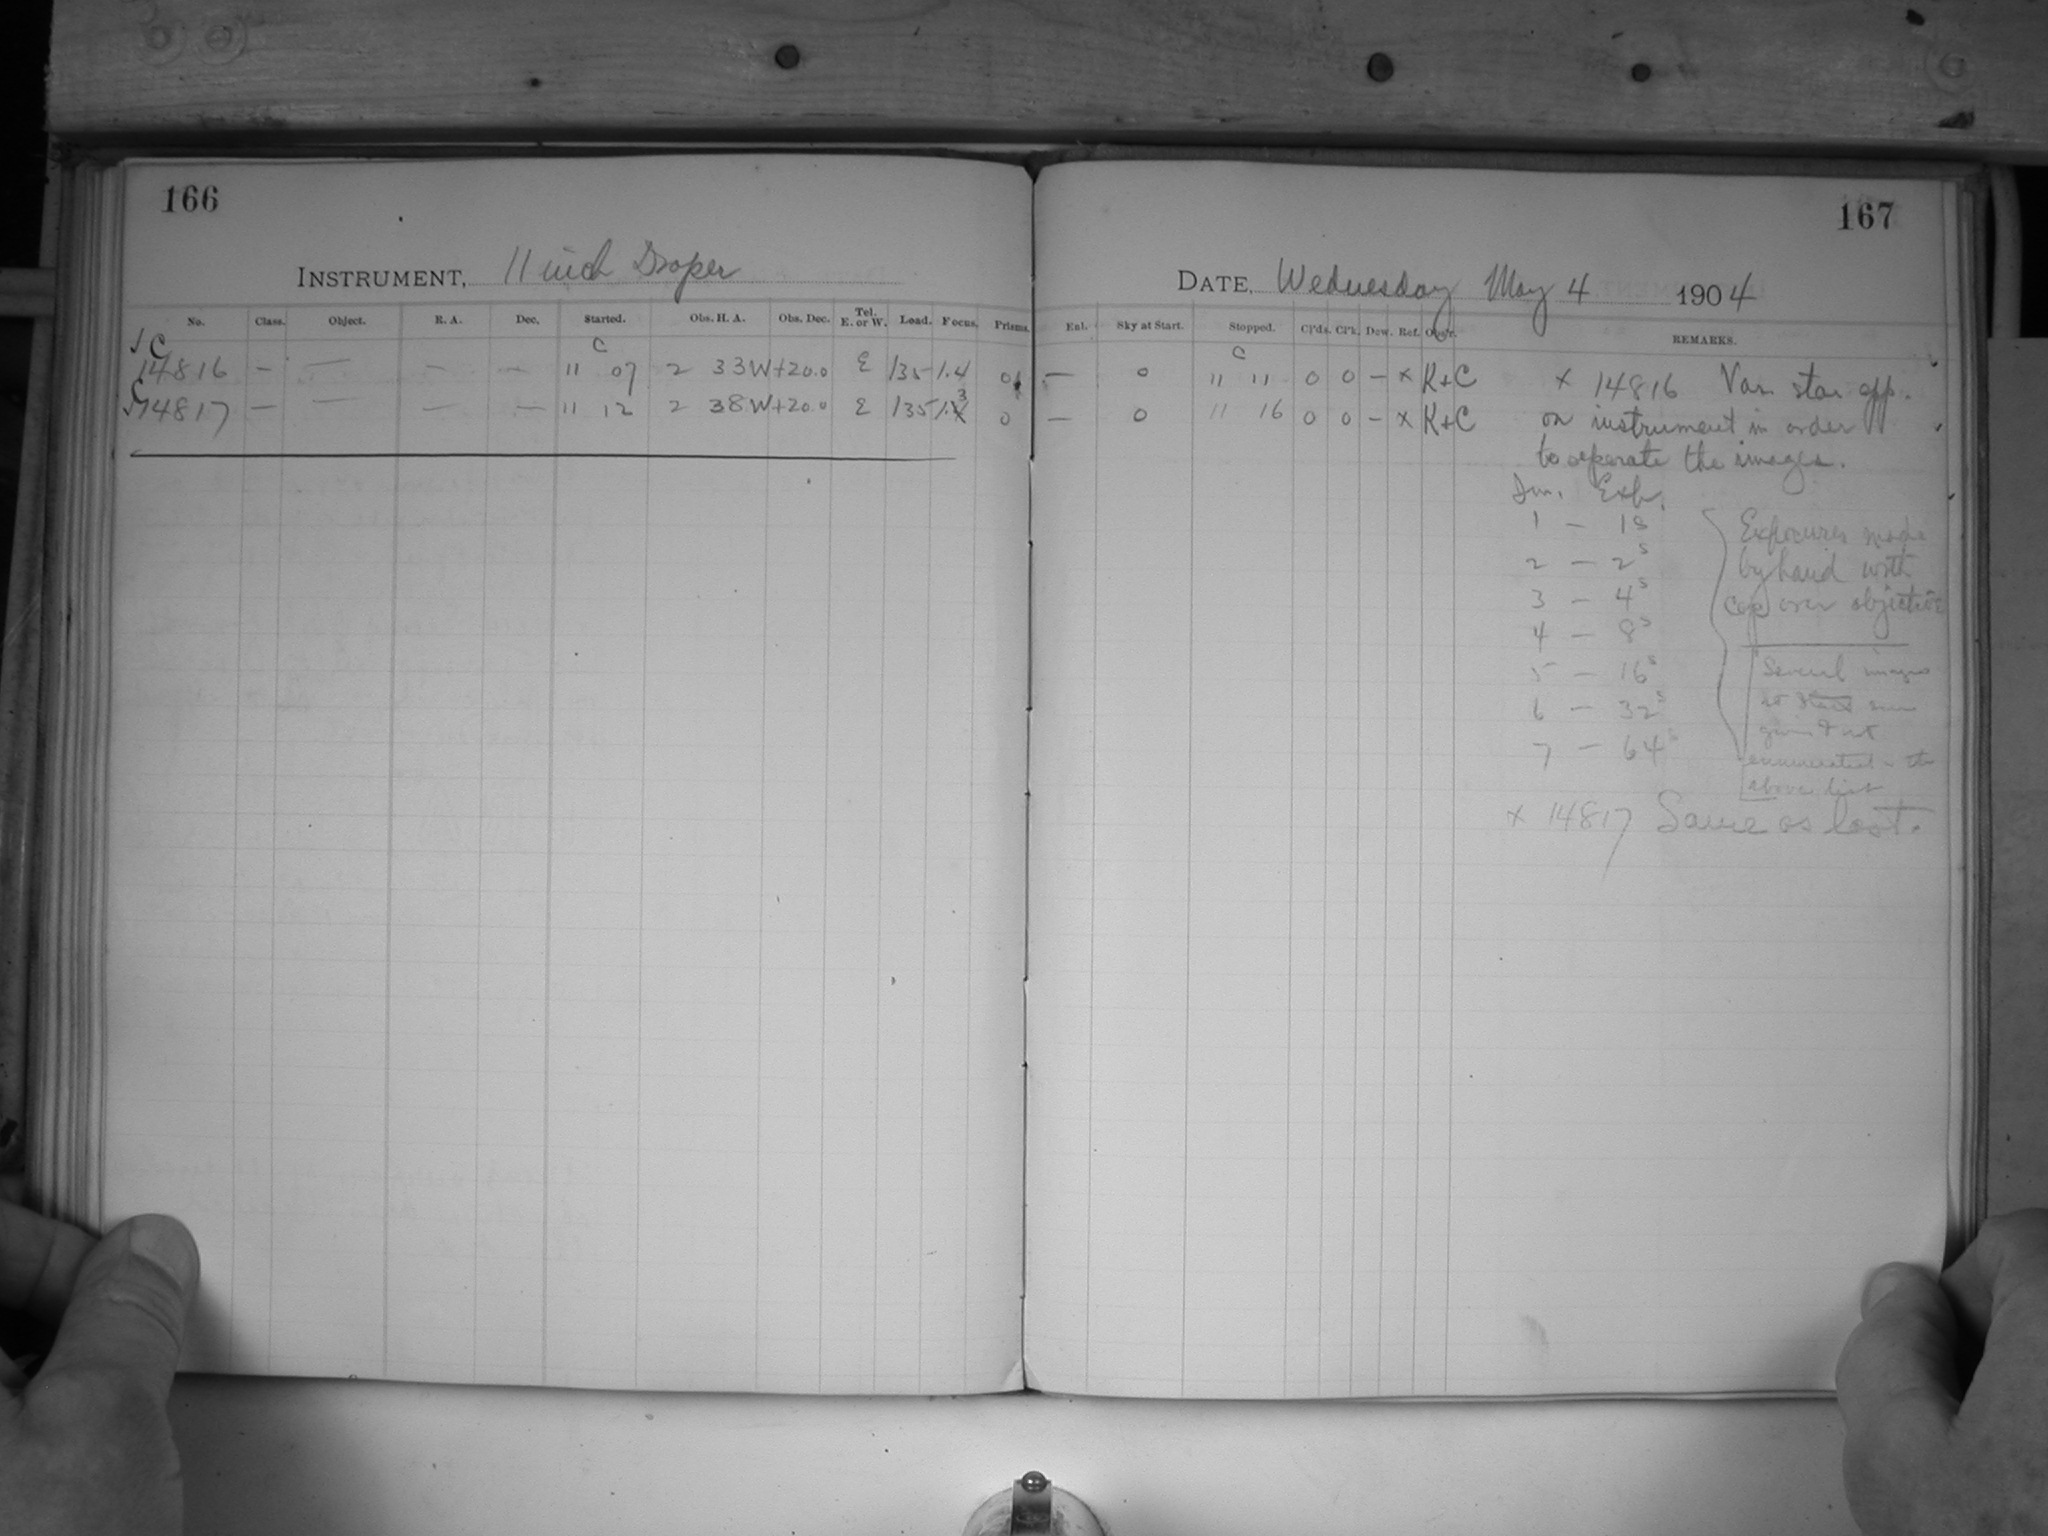 166
INSTRUMENT, 11 inch Draper
No. Class. Object. R. A. Dec. Started. Obs. H. A. Obs. Dec. Tel. E. or W. Load. Focus. Prisms.
√ C C
14816 — — — — 11 07 2 33 W +20.0 E 135 1.4 0
C
√14817 — — — — 11 12 2 38 W +20.0 E 135 1.3 0
167
DATE, Wednesday May 4 1904
Enl. Sky at Start. Stopped. Cl'ds. Cl'k. Dew. Ref. Obs'r. REMARKS.
C
— 0 11 11 0 0 — x K+C x 14816 Var. star app.
— 0 11 16 0 0 — x K+C on instrument in order
to seperate the images.
Im. Exp.
1 — 1s
2 — 2s
3 — 4s
4 — 8s
5 — 16s
6 — 32s
7 — 64s
Exposures made
by hand with
cap over objective
Several images
at start were
given & not
enumerated in the
above list
x 14817 Same as last.